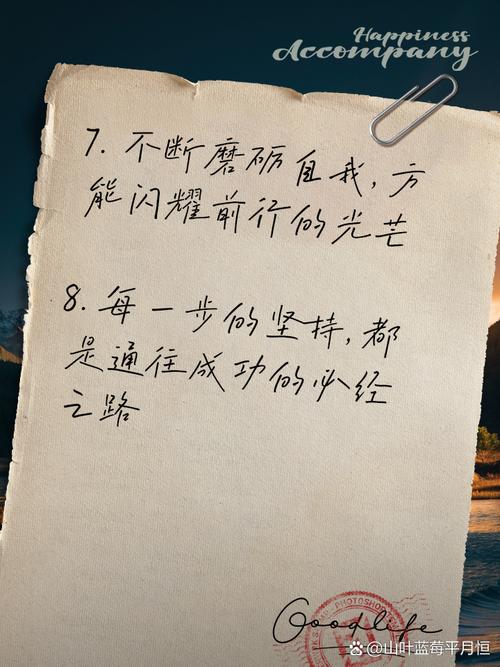 Happiness
Accompany
7. 不断磨砺自我,方
能闪耀前行的光芒
8. 每一步的坚持,都
是通往成功的必经
之路
Goodlife
PHOTOSHOP
@山叶蓝莓平月恒